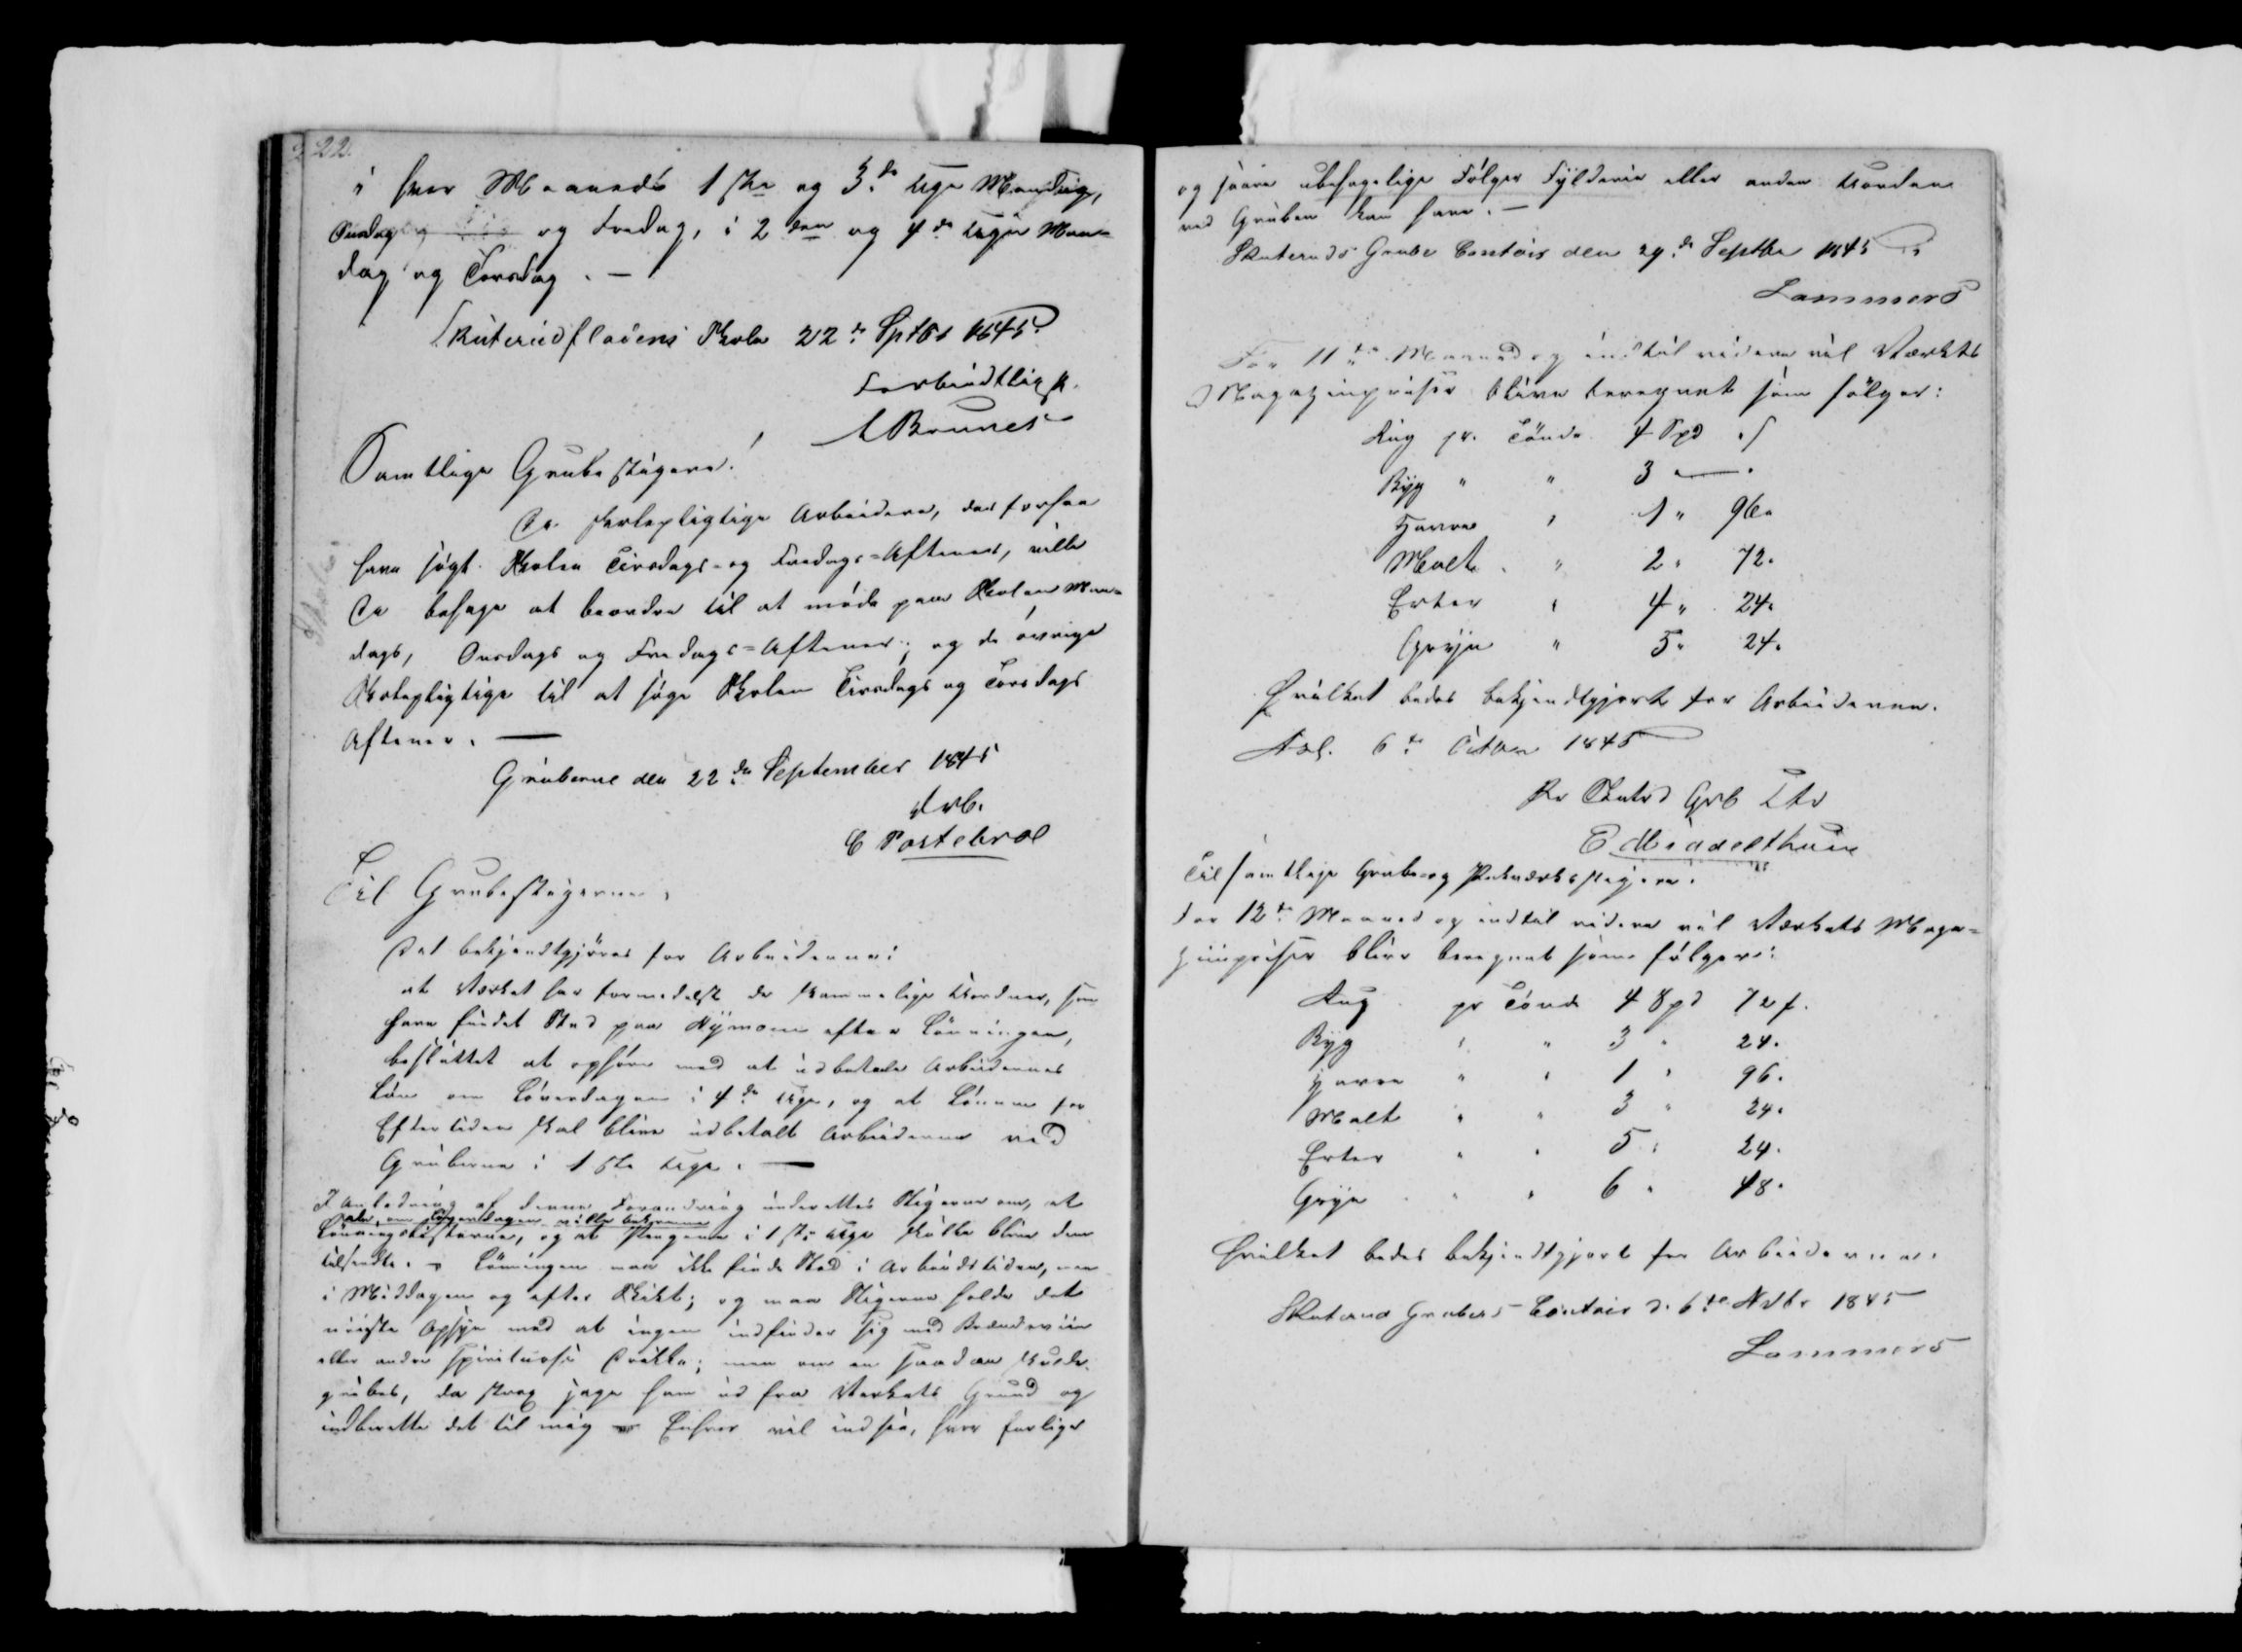 22.
i hver Maaneds 1ste og 3de Uge Mandag,
Onsdag og Fredag, i 2den og 4de Uge Man=
dag og Torsdag. —
Skuterudfladens Skole 22de Sptbr 1845.
Forbindtligst.
A Brunes
Samtlige Grubestigere!
De skolepligtige Arbeidere, der forhen
have søgt Skolen Tirsdags- og Fredags=Aftener, ville
De behage at beordre til at møde paa Skolen Man=
dags, Onsdags og Fredags=Aftener; og de øvrige
Skolepligtige til at søge Skolen Tirsdags og Torsdags
Aftener. —
Skole.
Gruberne den 22de September 1845
Arb.
C Pastebrøl
Til Grubestigerne,
Det bekjendtgjøres for Arbeiderne:
at Værket har formedelst de skammelige Uordner, som
have fundet Sted paa Nymoen efter Lønningen,
besluttet at ophøre med at udbetale Arbeidernes
Løn om Løverdagen i 4de Uge, og at Lønnen for
Eftertiden skal blive udbetalt Arbeiderne ved
Gruberne i 1ste Uge. —
I Anledning af denne Forandring underrettes Stigerne om, at
de, om Løverdagen ville bekomme
Lønningslisterne, og at Pengene i 1ste Uge skulle blive dem
tilsendte. — Lønningen maa ikke finde Sted i Arbeidstiden, men
i Middagen og efter Skift; og maa Stigerne holde det
nøieste Opsyn med at ingen indfinder sig med Brændeviin
eller andre spirituøse Drikke; men om en saadan skulde
gribes, da strax jage ham ud fra Værkets Grund og
indberette det til mig — Enhver vil indsee, hvor farlige
og saare ubehagelige Følger Fylderie eller anden Uorden
ved Gruben kan have. —
Skuteruds Grube Contoir den 29de Septbr 1845
Lammers
For 11te Maaned og indtil videre vil Værkets
Magazinpriser blive beregnet som følger:
Rug pr. Tønde 4 Spd " s
Byg " " 3 — "
Havre " 1 " 96 "
Malt " " 2 " 72 "
Erter " 4 " 24 "
Gryn " 5 " 24 "
Hvilket bedes bekjendtgjort for Arbeiderne.
6te Octbr 1845
Pr Skutrd Grb Ctr
C. Middelthun
Til samtlige Grube- og Pukværksstigere.
For 12te Maaned og indtil videre vil Værkets Maga=
zinpriser blive beregnet som følger:
Rug pr Tønde 4 Spd 72 s.
Byg " " 3 " 24 "
Havre " " 1 " 96 "
Malt " " 3 " 24 "
Erter " " 5 " 24 "
Gryn " " 6 " 48 "
Hvilket bedes bekjendtgjort for Arbeiderne.
Skuterud Grubers Contoir d. 6te Nvbr 1845
Lammers